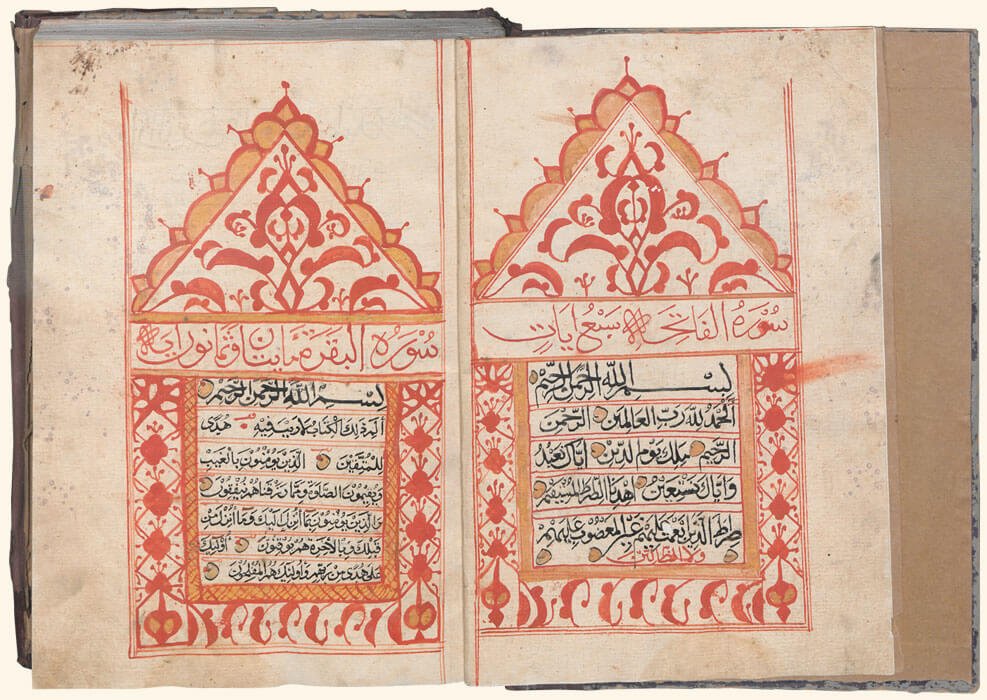 سورة الفاتحة سبع ايات
بسم الله الرحمن الرحيم
الحمد لله رب العالمين الرحمن
الرحيم ملك يوم الدين اياك نعبد
واياك نستعين اهدنا الصراط المستقيم
صراط الذين انعمت عليهم غير المغضوب عليهم
ولا الضالين
سورة البقرة مايتان
بسم الله الرحمن الرحيم
الم ذلك الكتاب لا ريب فيه هدى
للمتقين الذين يومنون بالغيب
ويقيمون الصلوة ومما رزقناهم ينفقون
والذين يومنون بما انزل اليك وما انزل من
قبلك وبالاخرة هم يوقنون اولئك
على هدى من ربهم واولئك هم المفلحون